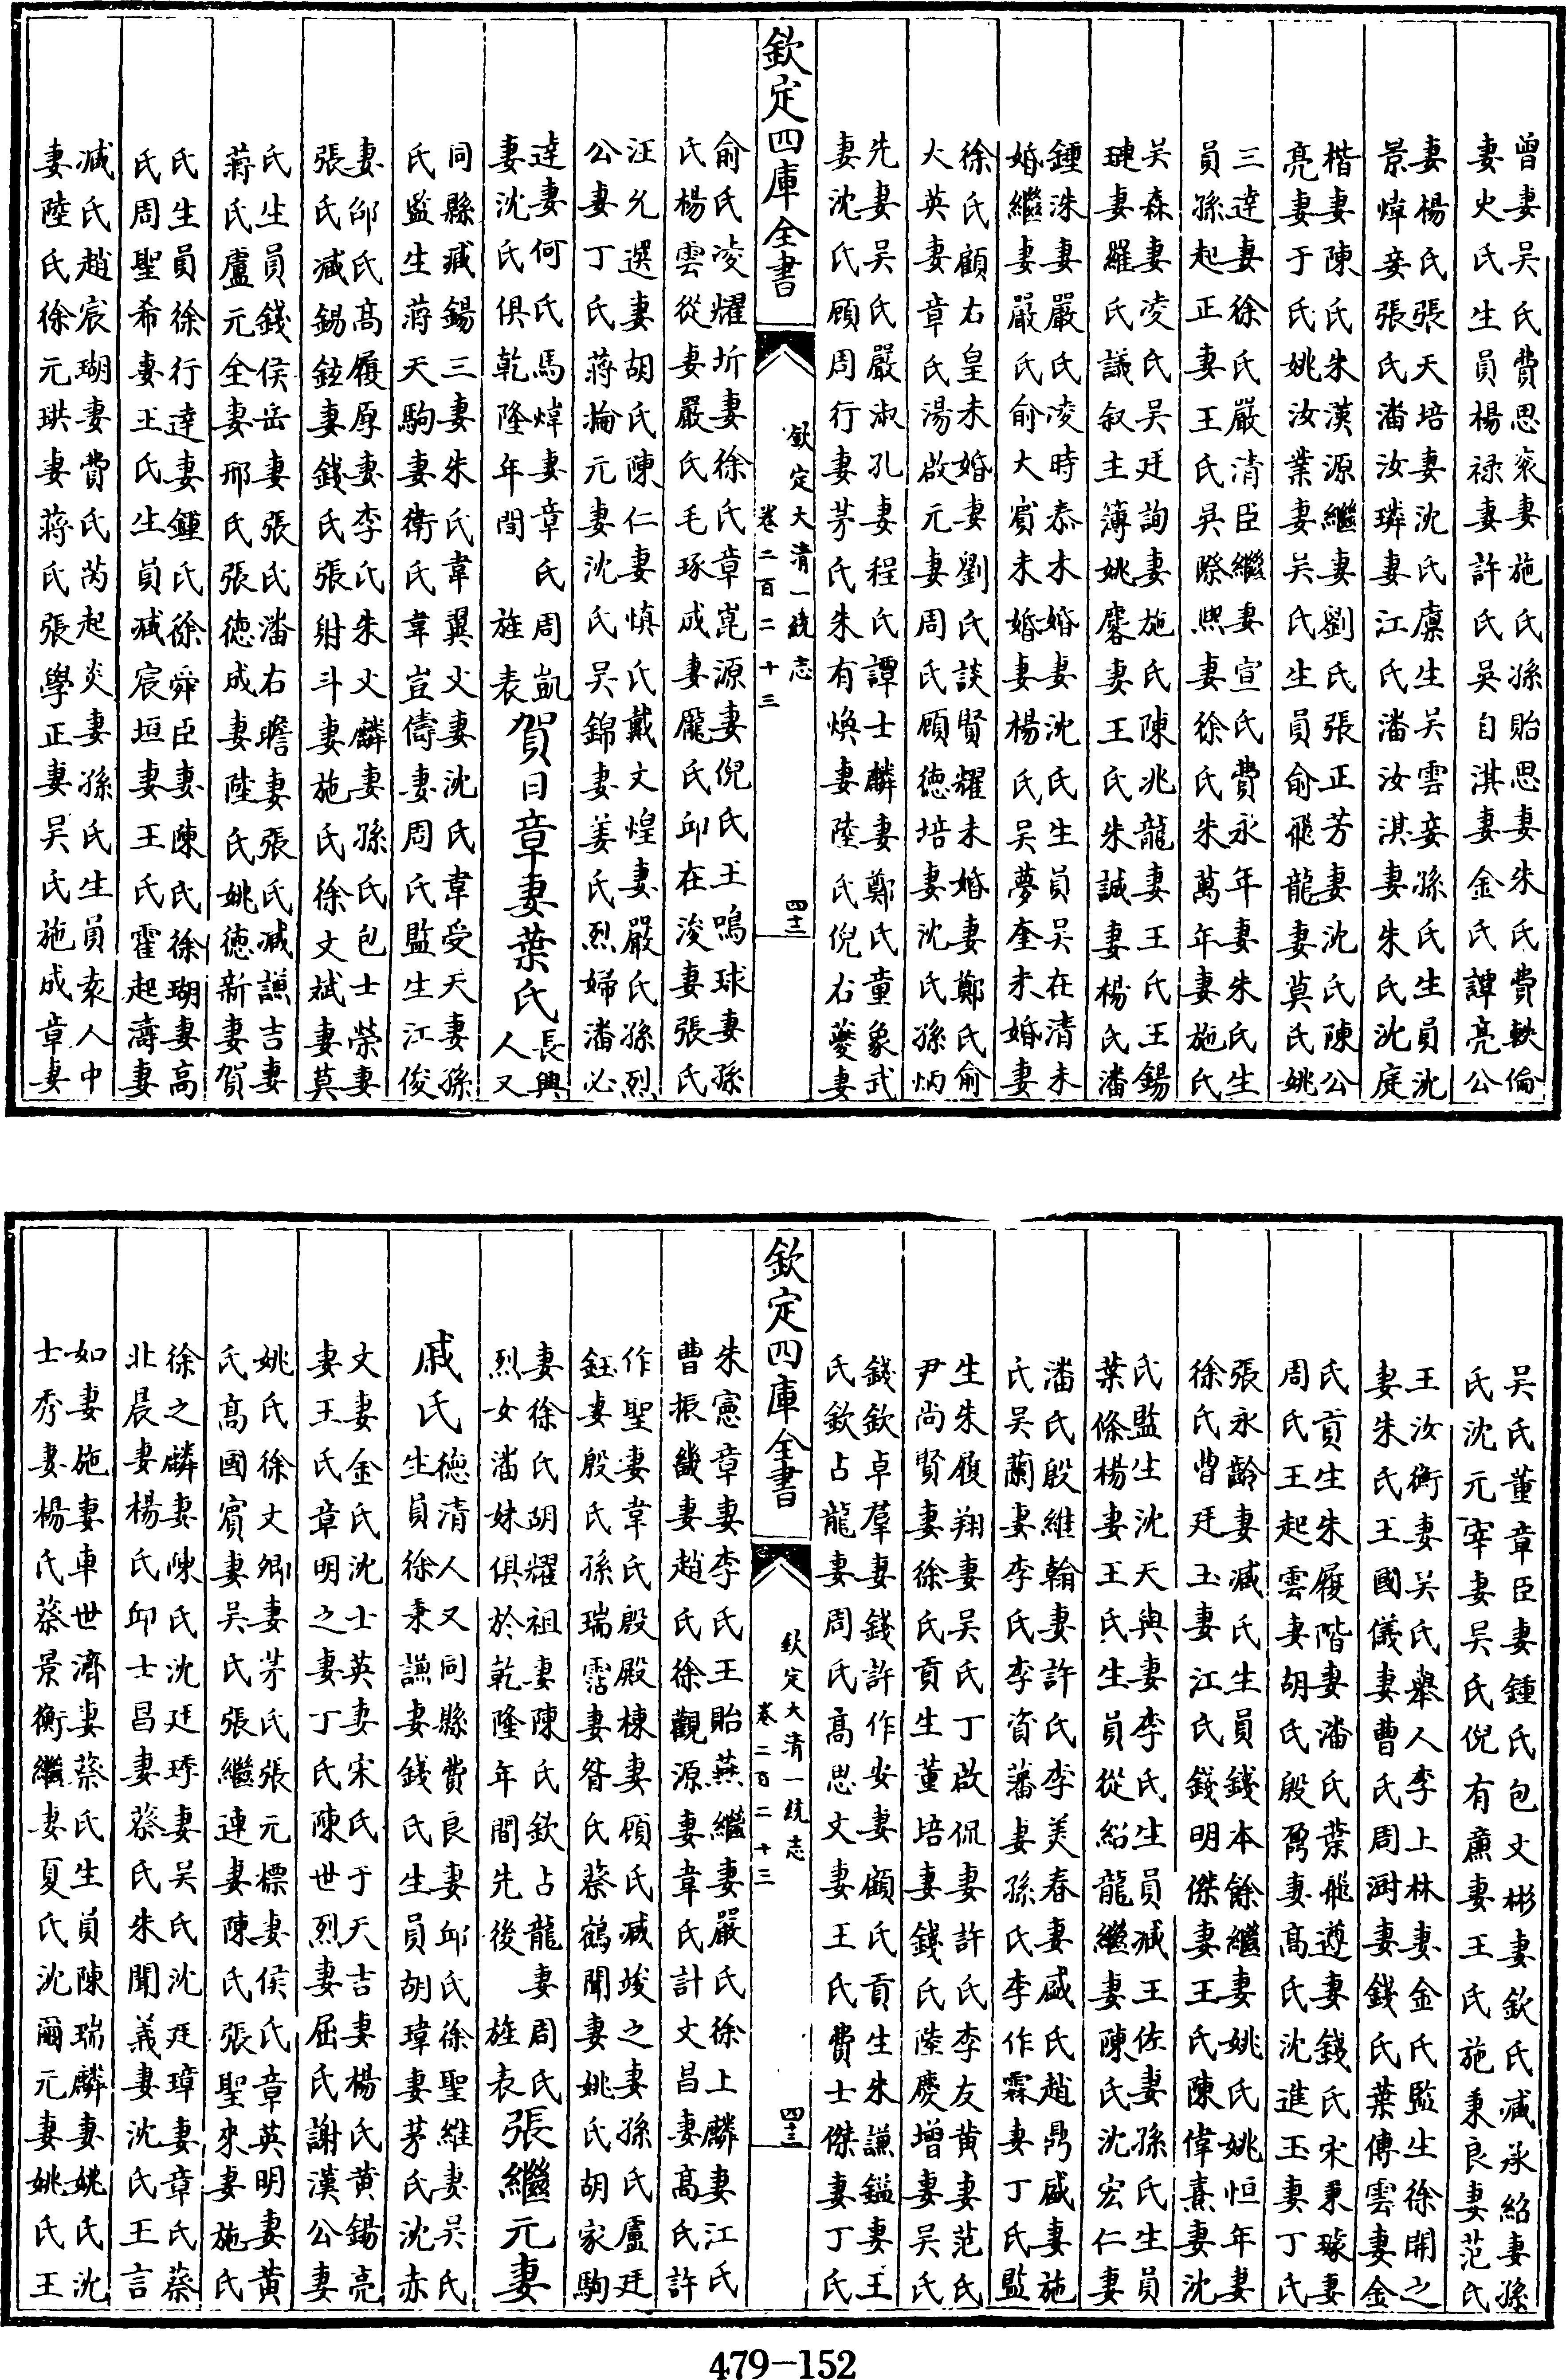 曾妻吴氏費思衮妻施氏孫貽思妻朱氏費軼倫
妻史氏生員楊禄妻許氏吳自淇妻金氏譚亮公
妻楊氏張天培妻沈氏廩生吴雲妾孫氏生員沈
景煒妾張氏潘汝璘妻江氏潘汝淇妻朱氏沈庭
楷妻陳氏朱漢源繼妻劉氏張正芳妻沈氏陳公
亮妻于氏姚汝業妻吴氏生員俞飛龍妻莫氏姚
三逹妻徐氏嚴清臣繼妻宣氏費永年妻朱氏生
員孫起正妻王氏吳際熙妻徐氏朱萬年妻施氏
吴森妻凌氏吴廷詢妻施氏陳兆龍妻王氏王錫
璉妻羅氏議叙主簿姚廮妻王氏朱誠妻楊氏潘
鍾洙妻嚴氏凌時泰未婚妻沈氏生員吴在清未
婚繼妻嚴氏俞大賔未婚妻楊氏吴夢奎未婚妻
徐氏顧右皇未婚妻劉氏談賢耀未婚妻鄭氏俞
大英妻章氏湯啟元妻周氏顧徳培妻沈氏孫炳
先妻吴氏嚴淑孔妻程氏譚士麟妻鄭氏童象武
妻沈氏顧周行妻芳氏朱有煥妻陸氏倪右䕫妻
欽定四庫全書
欽定大清一統志
卷二百二十三
四十二
俞氏凌耀圻妻徐氏章崑源妻倪氏王鳴球妻孫
氏楊雲從妻嚴氏毛琢成妻龎氏邱在浚妻張氏
汪允選妻胡氏陳仁妻慎氏戴文煌妻嚴氏孫烈
公妻丁氏蔣掄元妻沈氏吴錦妻姜氏烈婦潘必
逹妻何氏馬煒妻章氏周凱
妻沈氏俱乾隆年間旌表
賀日章妻葉氏
長興
人又
同縣臧錫三妻朱氏韋翼文妻沈氏韋受天妻孫
氏監生蔣天駒妻衛氏韋豈儔妻周氏監生江俊
妻邰氏髙履厚妻李氏朱文麟妻孫氏包士榮妻
張氏臧錫鉉妻錢氏張射斗妻施氏徐文斌妻莫
氏生員錢侯岳妻張氏潘右瞻妻張氏臧謙吉妻
蔣氏盧元全妻邢氏張徳成妻陸氏姚徳新妻賀
氏生員徐行逹妻鍾氏徐舜臣妻陳氏徐瑚妻髙
氏周聖希妻王氏生員臧宸垣妻王氏霍起濤妻
臧氏趙宸瑚妻費氏芮起炎妻孫氏生員袁人中
妻陸氏徐元珙妻蔣氏張學正妻吴氏施成章妻
吴氏董章臣妻鍾氏包文彬妻欽氏臧承紹妻孫
氏沈元宰妻吴氏倪有薦妻王氏施秉良妻范氏
王汝衡妻吴氏舉人李上林妻金氏監生徐開之
妻朱氏王國儀妻曹氏周澍妻錢氏葉傅雲妻金
氏貢生朱履階妻潘氏葉飛遵妻錢氏宋秉琭妻
周氏王起雲妻胡氏殷勇妻髙氏沈進玉妻丁氏
張永齡妻臧氏生員錢本餘繼妻姚氏姚恒年妻
徐氏曹廷玉妻江氏錢明傑妻王氏陳偉熹妻沈
氏監生沈天與妻李氏生員臧王佐妻孫氏生員
葉條楊妻王氏生員從紹龍繼妻陳氏沈宏仁妻
潘氏殷維翰妻許氏李美春妻戚氏趙鼎盛妻施
氏吴蘭妻李氏李資藩妻孫氏李作霖妻丁氏監
生朱履翔妻吴氏丁啟侃妻許氏李友黄妻范氏
尹尚賢妻徐氏貢生董培妻錢氏陸慶增妻吴氏
錢欽卓羣妻錢許作安妻顧氏貢生朱謙鎰妻王
氏欽占龍妻周氏髙思文妻王氏費士傑妻丁氏
欽定四庫全書
欽定大清一統志
卷二百二十三
四十三
朱憲章妻李氏王貽燕繼妻嚴氏徐上麟妻江氏
曹振畿妻趙氏徐觀源妻韋氏計文昌妻髙氏許
作聖妻韋氏殷殿棟妻顧氏臧竣之妻孫氏盧廷
鈺妻殷氏孫瑞霑妻昝氏蔡鶴聞妻姚氏胡家駒
妻徐氏胡耀祖妻陳氏欽占龍妻周氏
烈女潘妹俱於乾隆年間先後旌表
張繼元妻
戚氏
徳清人又同縣費良妻邱氏徐聖維妻吴氏
生員徐秉謙妻錢氏生員胡瑋妻茅氏沈赤
文妻金氏沈士英妻宋氏于天吉妻楊氏黄錫亮
妻王氏章明之妻丁氏陳世烈妻屈氏謝漢公妻
姚氏徐文卿妻芳氏張元標妻侯氏章英明妻黄
氏髙國賔妻吴氏張繼連妻陳氏張聖來妻施氏
徐之麟妻陳氏沈廷琇妻吴氏沈廷璋妻章氏蔡
北晨妻楊氏邱士昌妻蔡氏朱聞義妻沈氏王言
如妻施妻車世濟妻蔡氏生員陳瑞麟妻姚氏沈
士秀妻楊氏蔡景衡繼妻夏氏沈爾元妻姚氏王
479—152